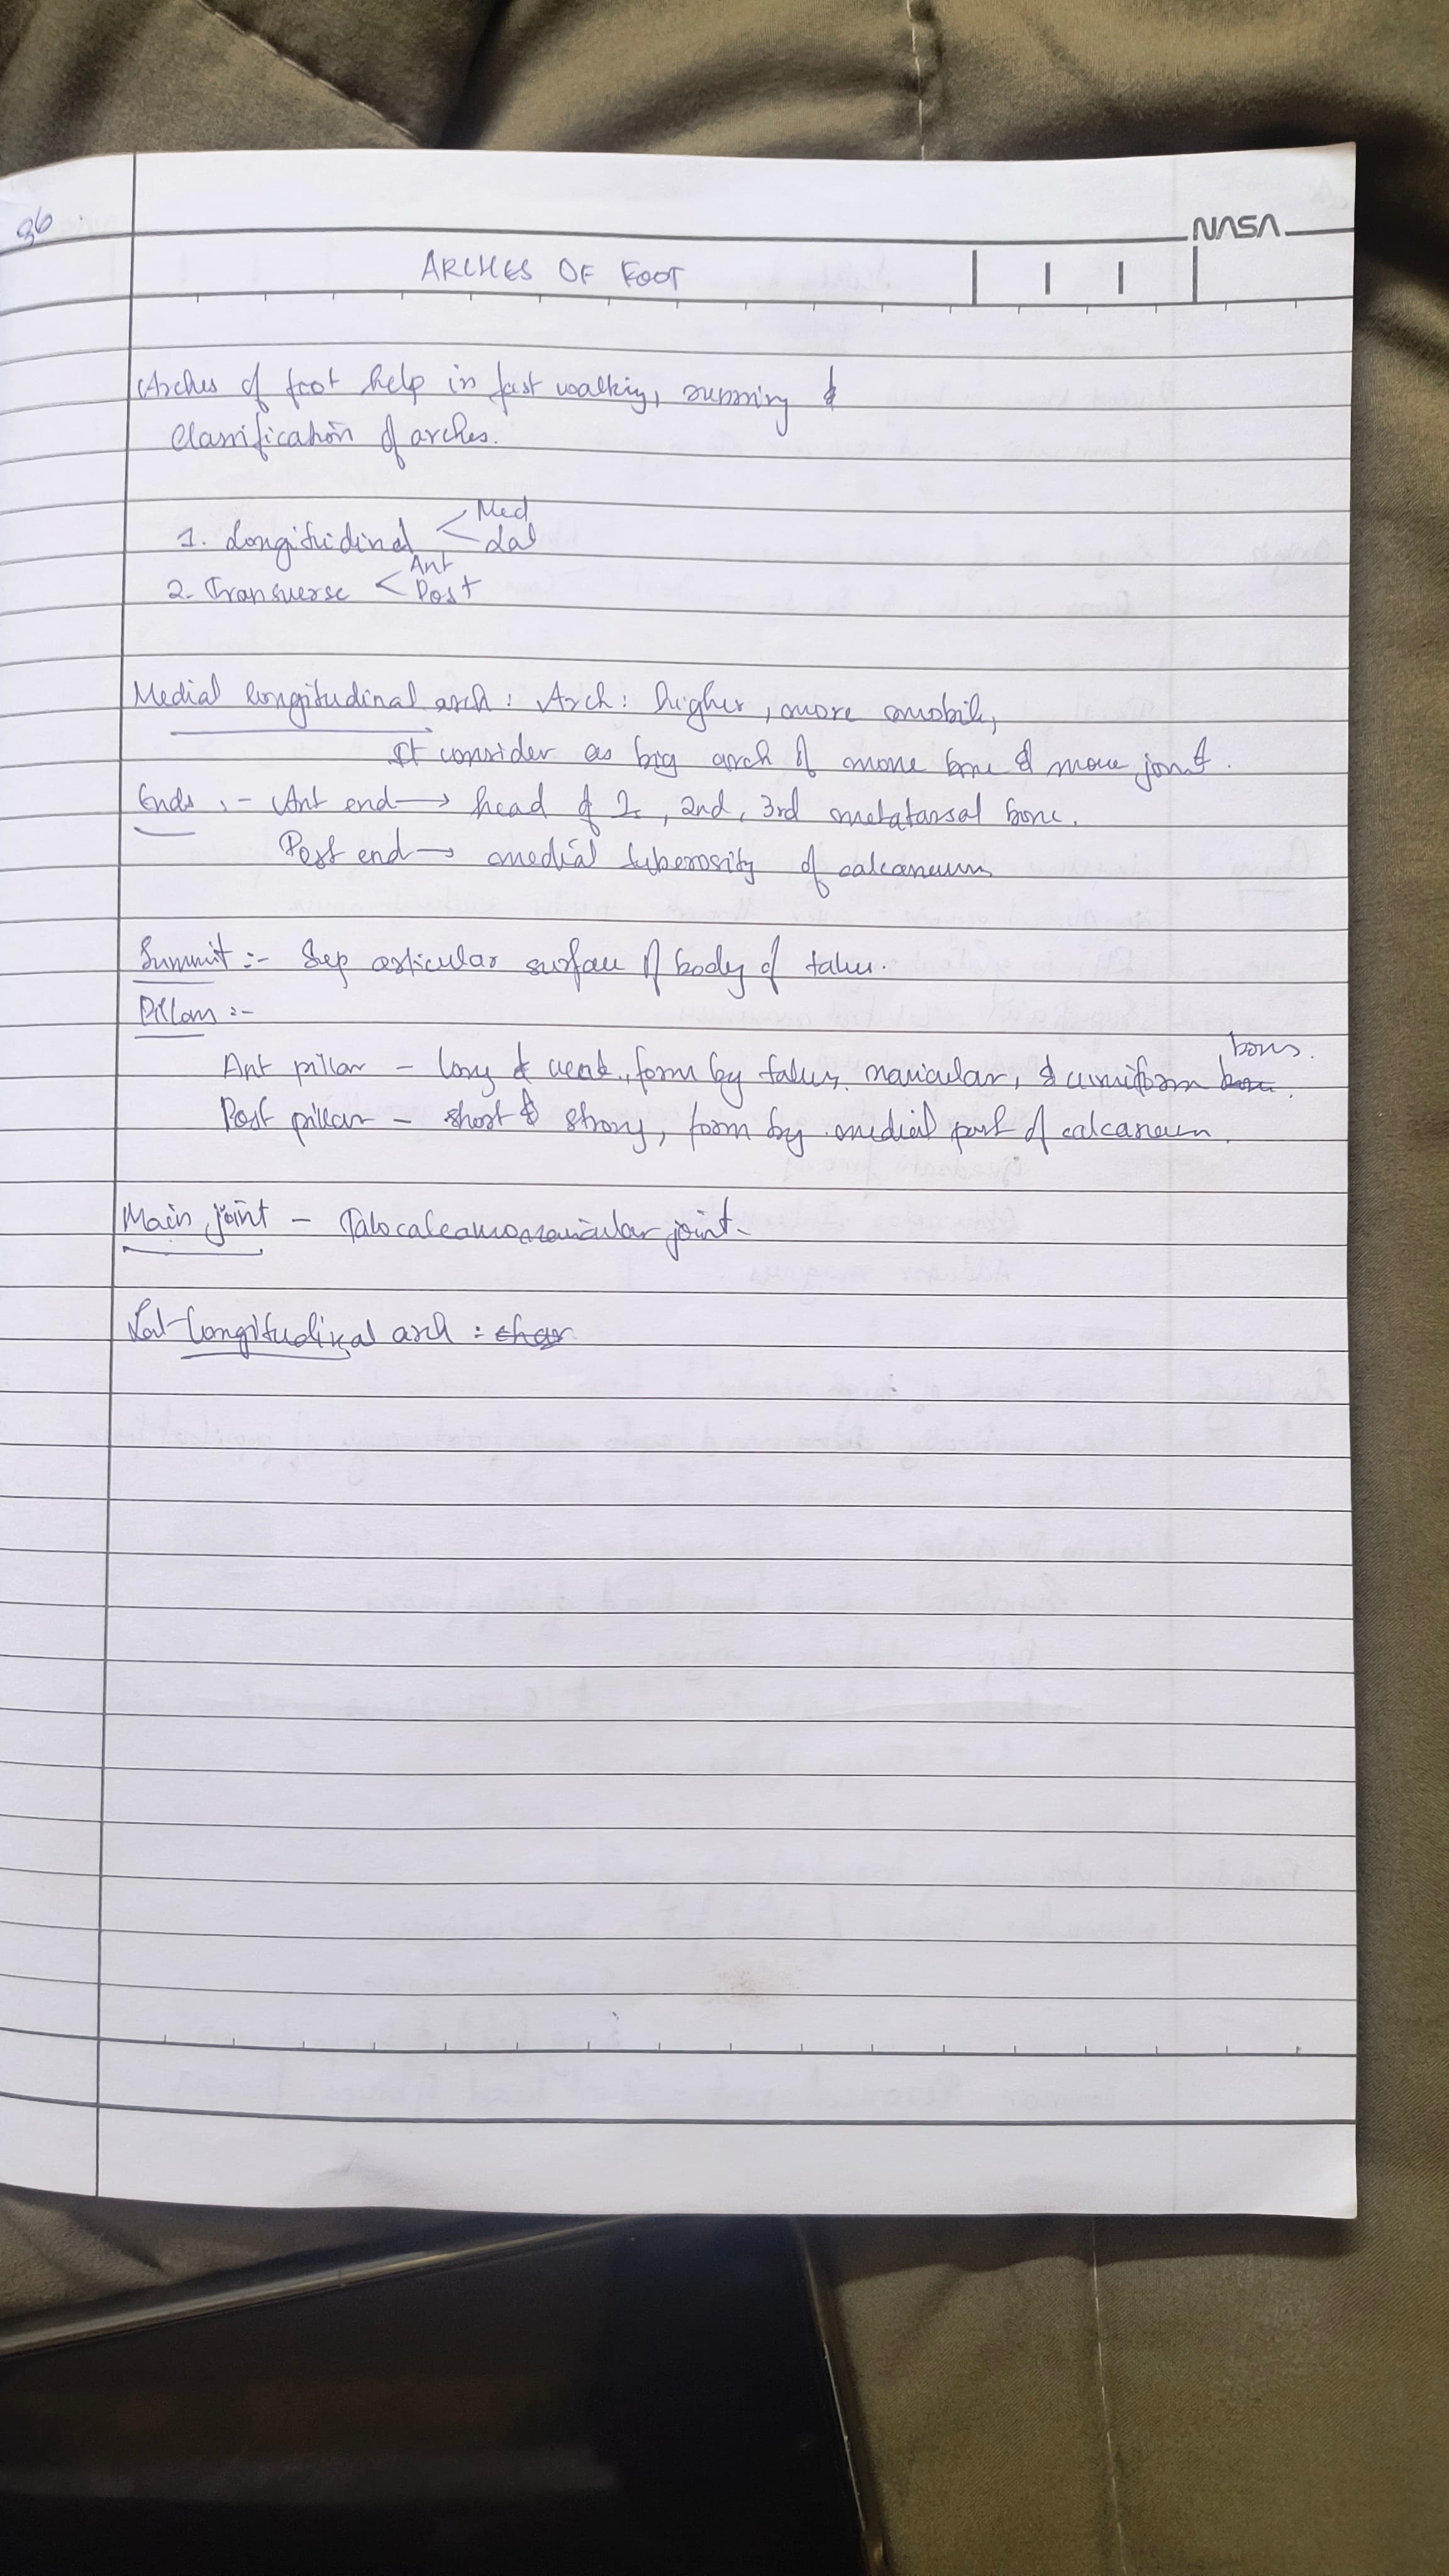 36
NASA
ARCHES OF FOOT
Arches of foot help in fast walking, running &
Classification of arches.
1. Longitudinal < Med
Lat
2. Transverse < Ant
Post
Medial longitudinal arch : Arch : higher, more mobile,
It consider as big arch of more bone & more joint.
Ends :- Ant end → head of 1, 2nd, 3rd metatarsal bone.
Post end → medial tuberosity of calcaneum
Summit :- Sup articular surface of body of talus.
Pillars :-
Ant pillar - long & weak, form by talus, navicular, & cuneiform bones.
Post pillar - short & strong, form by medial part of calcaneum.
Main joint - Talocalcaneonavicular joint.
Lat Longitudinal arch :